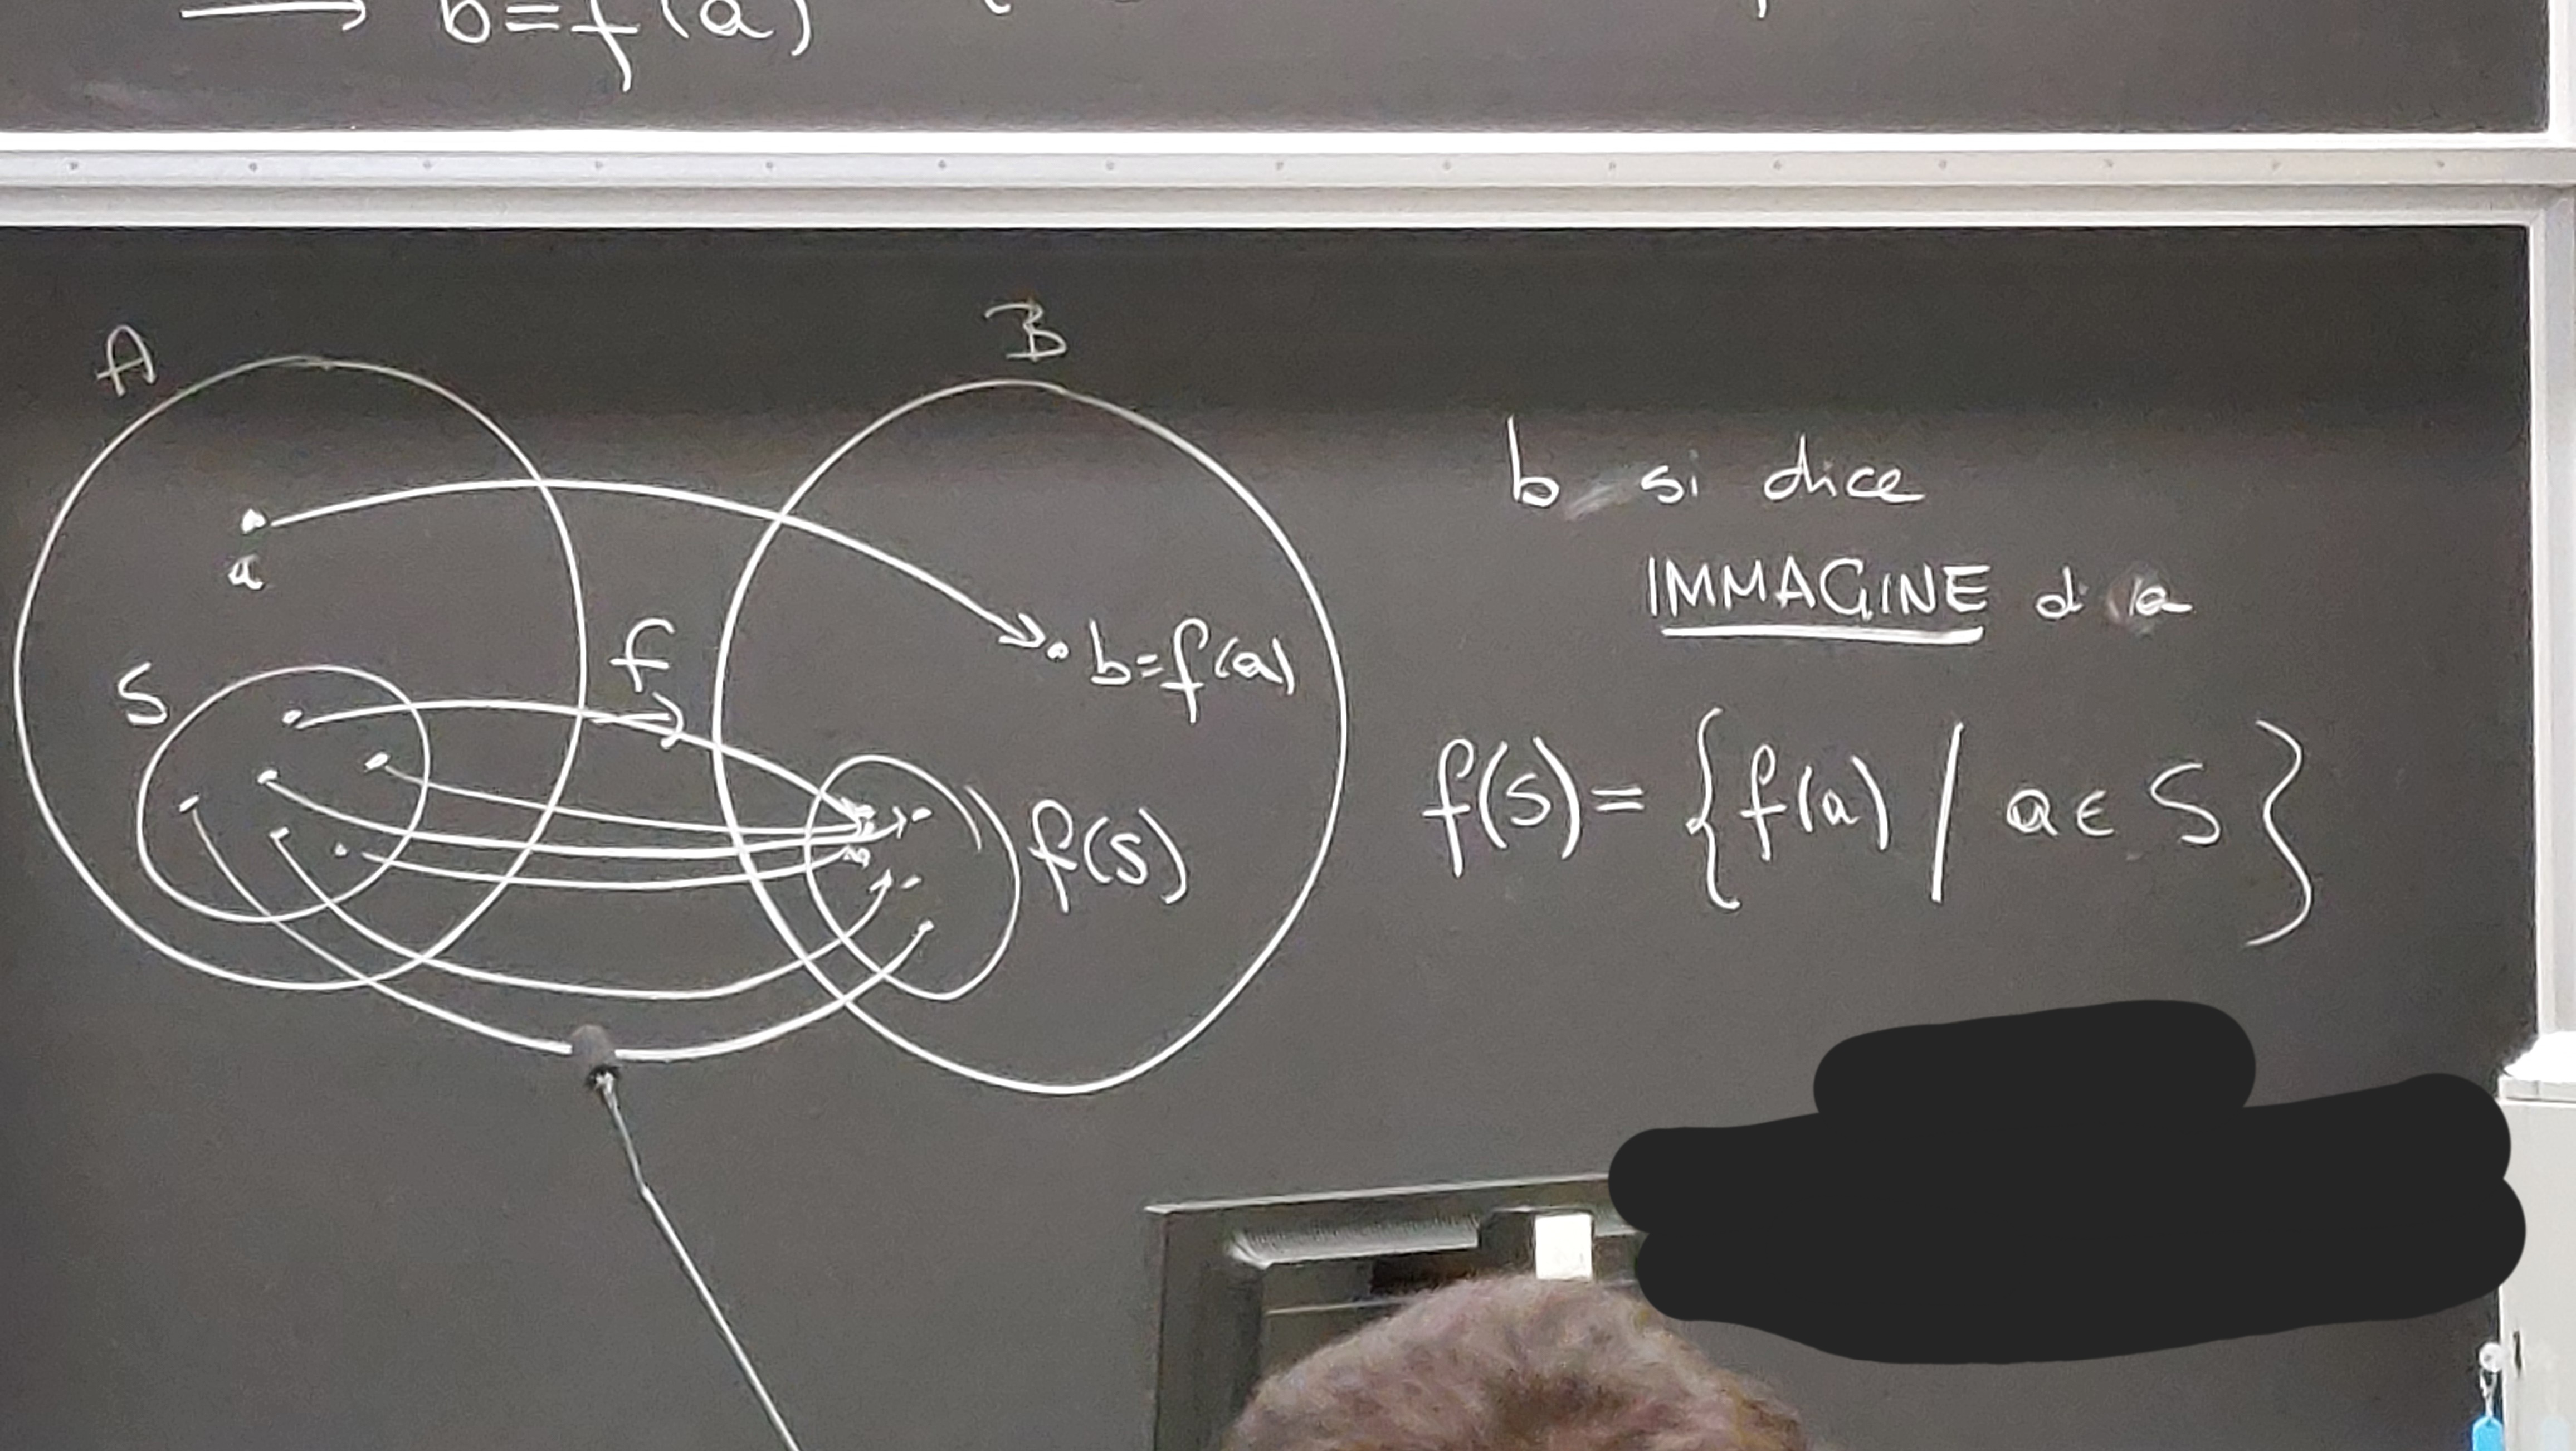 b=f(a)
A
B
a
f
b=f(a)
S
f(S)
b si dice
IMMAGINE di a
f(S)= {f(a) / a ∈ S}